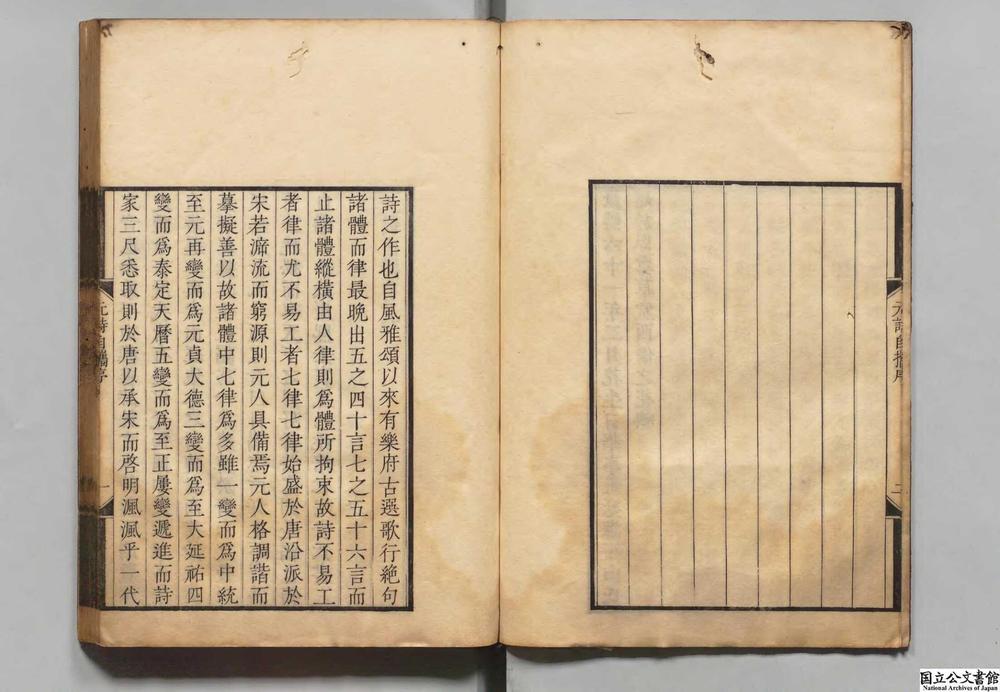 詩之作也自風雅頌以來有樂府古選歌行絶句
諸體而律最晩出五之四十言七之五十六言而
止諸體縱橫由人律則爲體所拘束故詩不易工
者律而尤不易工者七律七律始盛於唐沿派於
宋若㴑流而窮源則元人具備焉元人格調諧而
摹擬善以故諸體中七律爲多雖一變而爲中統
至元再變而爲元貞大德三變而爲至大延祐四
變而爲泰定天曆五變而爲至正屢變遞進而詩
家三尺悉取則於唐以承宋而啓明渢渢乎一代
元詩自攜序
一
元詩自攜序
二
国立公文書館
National Archives of Japan